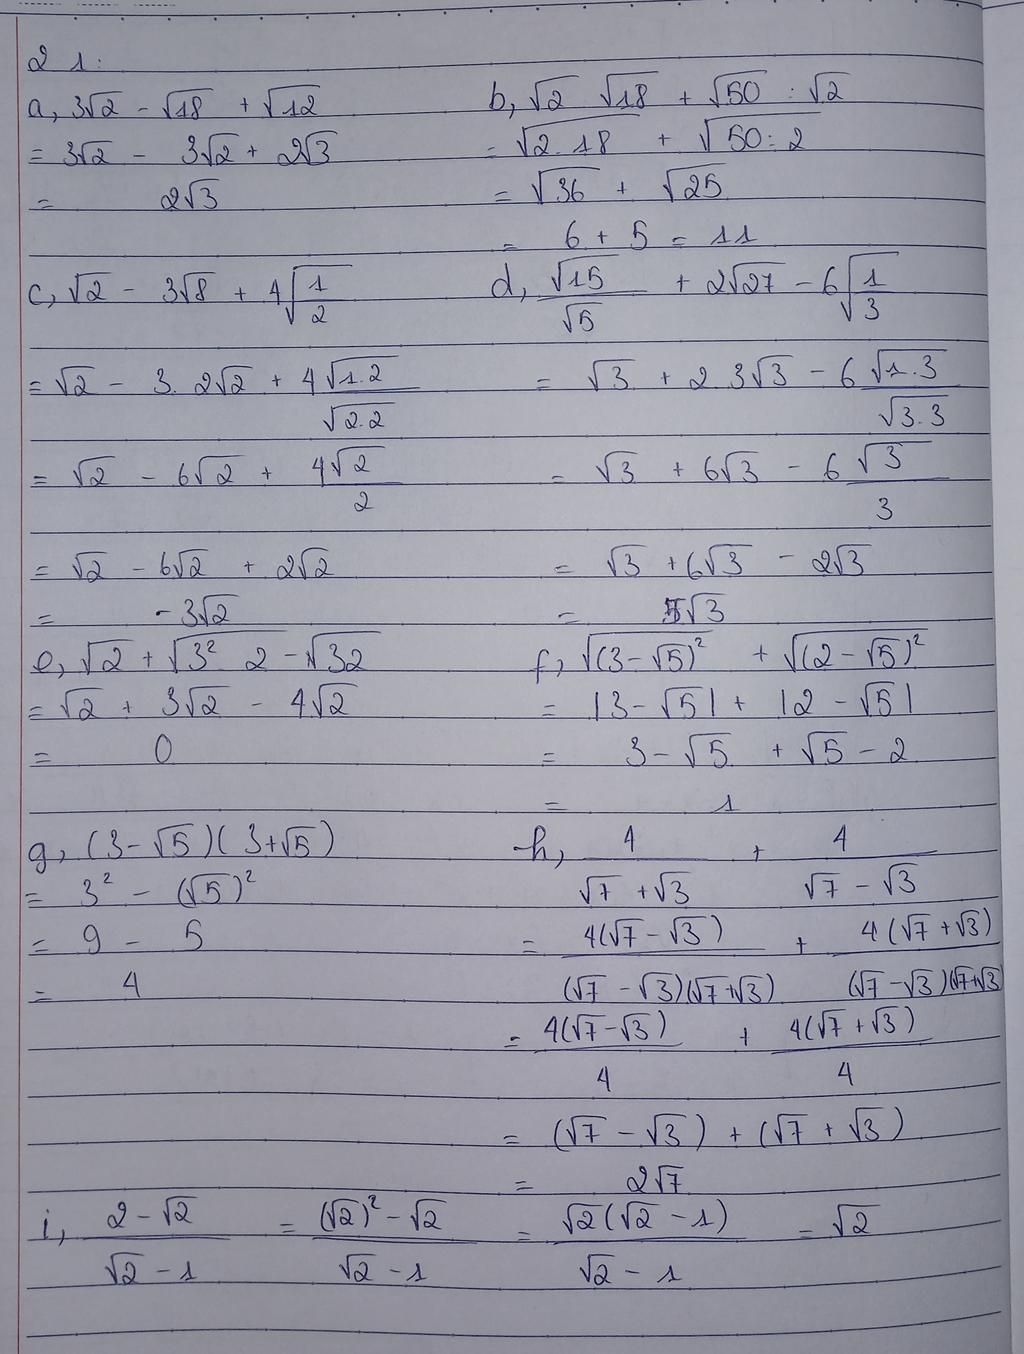 21:
a, 3√2 - √18 + √12
= 3√2 - 3√2 + 2√3
= 2√3
b, √2 √18 + √50 : √2
= √(2.18) + √(50:2)
= √36 + √25
= 6 + 5 = 11
c, √2 - 3√8 + 4√(1/2)
= √2 - 3. 2√2 + 4√(1.2)/√(2.2)
= √2 - 6√2 + 4√2/2
= √2 - 6√2 + 2√2
= -3√2
d, √15/√5 + 2√27 - 6√(1/3)
= √3 + 2.3√3 - 6√(1.3)/√(3.3)
= √3 + 6√3 - 6√3/3
= √3 + 6√3 - 2√3
= 5√3
e, √2 + √(3² 2) - √32
= √2 + 3√2 - 4√2
= 0
f, √(3-√5)² + √(2-√5)²
= |3-√5| + |2-√5|
= 3-√5 + √5-2
= 1
g, (3-√5)(3+√5)
= 3² - (√5)²
= 9 - 5
= 4
h, 4/(√7+√3) + 4/(√7-√3)
= 4(√7-√3)/(√7-√3)(√7+√3) + 4(√7+√3)/(√7-√3)(√7+√3)
= 4(√7-√3)/4 + 4(√7+√3)/4
= (√7-√3) + (√7+√3)
= 2√7
i, (2-√2)/(√2-1) = ((√2)²-√2)/(√2-1) = √2(√2-1)/(√2-1) = √2